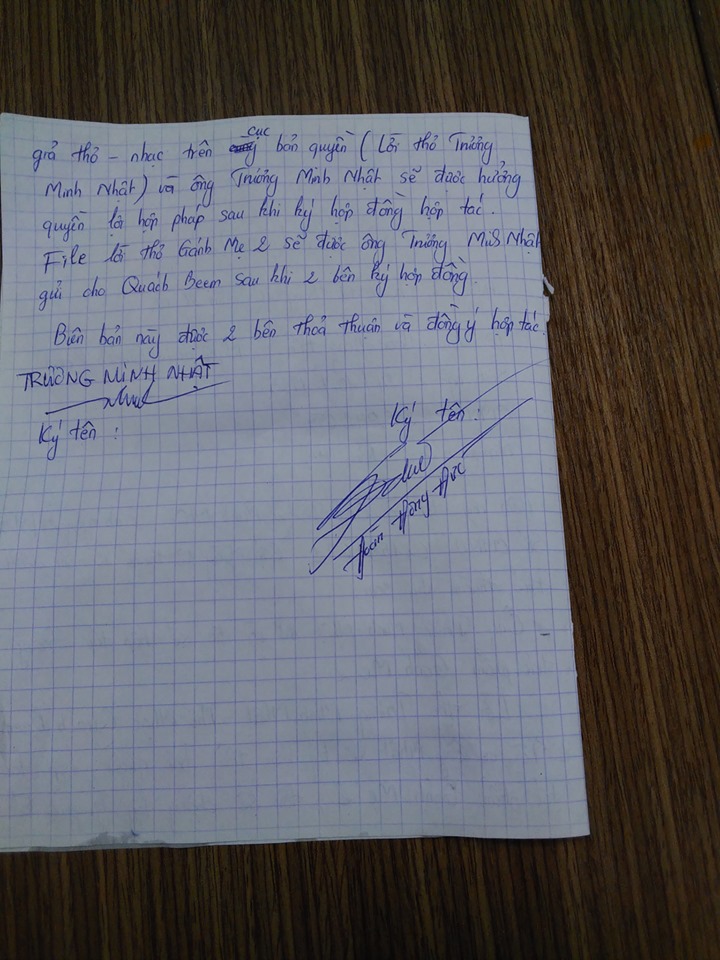 cục
giả thơ - nhạc trên bản quyền ( Lời thơ Trương
Minh Nhật ) và ông Trương Minh Nhật sẽ được hưởng
quyền lợi hợp pháp sau khi ký hợp đồng hợp tác.
File lời thơ Gánh Mẹ 2 sẽ được ông Trương Nhật
gửi cho Quách Beem sau khi 2 bên ký hợp đồng.
Biên bản này được 2 bên thoả thuận và đồng ý hợp tác.
TRƯƠNG MINH NHẬT
Ký tên :
Ký tên :